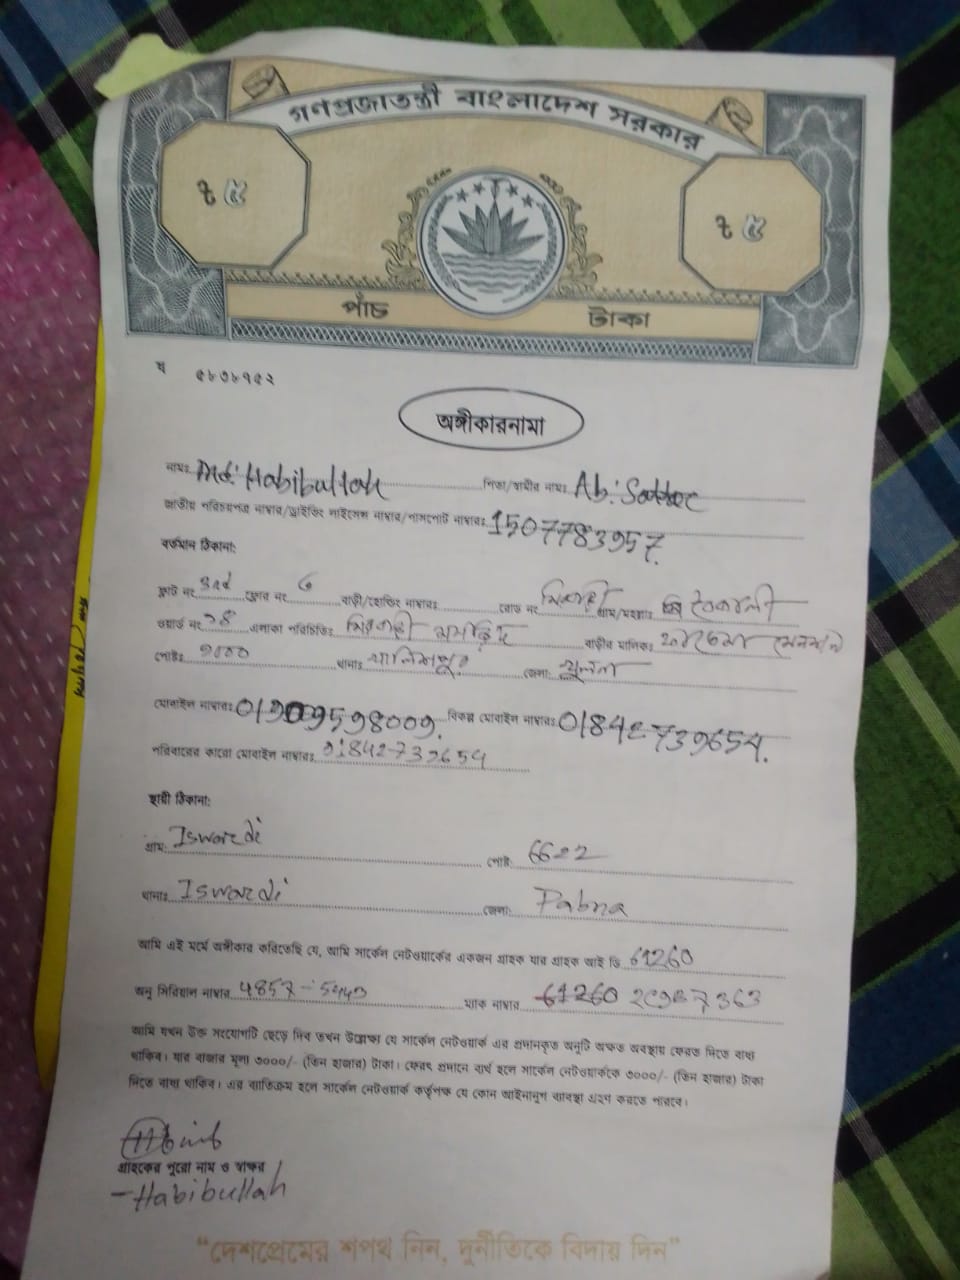 গণপ্রজাতন্ত্রী বাংলাদেশ সরকার
৳ ৫ ৳ ৫
পাঁচ টাকা
ঘ ৫৮৩৮৭৫২
অঙ্গীকারনামা
নামঃ Md: Habibullah পিতা/স্বামীর নামঃ Ab: Sattar
জাতীয় পরিচয়পত্র নাম্বার/ড্রাইভিং লাইসেন্স নাম্বার/পাসপোর্ট নাম্বারঃ 1507783957.
বর্তমান ঠিকানা:
ফ্লাট নং 3rd ফ্লোর নং 6 বাড়ী/হোল্ডিং নাম্বারঃ রোড নং গ্রাম/মহল্লাঃ বৈকালী
ওয়ার্ড নং ১৪ এলাকা পরিচিতিঃ মসজিদ বাড়ীর মালিকঃ
পোষ্টঃ ৯০০০ থানাঃ খালিশপুর জেলা: খুলনা
মোবাইল নাম্বারঃ 01909598009. বিকল্প মোবাইল নাম্বারঃ 01842739654.
পরিবারের কারো মোবাইল নাম্বারঃ 01842739654
স্থায়ী ঠিকানা:
গ্রাম: Iswardi পোষ্ট: 6622
থানাঃ Iswardi জেলা: Pabna
আমি এই মর্মে অঙ্গীকার করিতেছি যে, আমি সার্কেল নেটওয়ার্কের একজন গ্রাহক যার গ্রাহক আই ডি 61260
অনু সিরিয়াল নাম্বার 4857-5443 ম্যাক নাম্বার
আমি যখন উক্ত সংযোগটি ছেড়ে দিব তখন উল্লেক্ষ্য যে সার্কেল নেটওয়ার্ক এর প্রদানকৃত অনুটি অক্ষত অবস্থায় ফেরত দিতে বাধ্য
থাকিব। যার বাজার মূল্য ৩০০০/- (তিন হাজার) টাকা। ফেরৎ প্রদানে ব্যর্থ হলে সার্কেল নেটওয়ার্ককে ৩০০০/- (তিন হাজার) টাকা
দিতে বাধ্য থাকিব। এর ব্যতিক্রম হলে সার্কেল নেটওয়ার্ক কর্তৃপক্ষ যে কোন আইনানুগ ব্যবস্থা গ্রহণ করতে পারবে।
গ্রাহকের পুরো নাম ও স্বাক্ষর
- Habibullah
"দেশপ্রেমের শপথ নিন, দুর্নীতিকে বিদায় দিন"